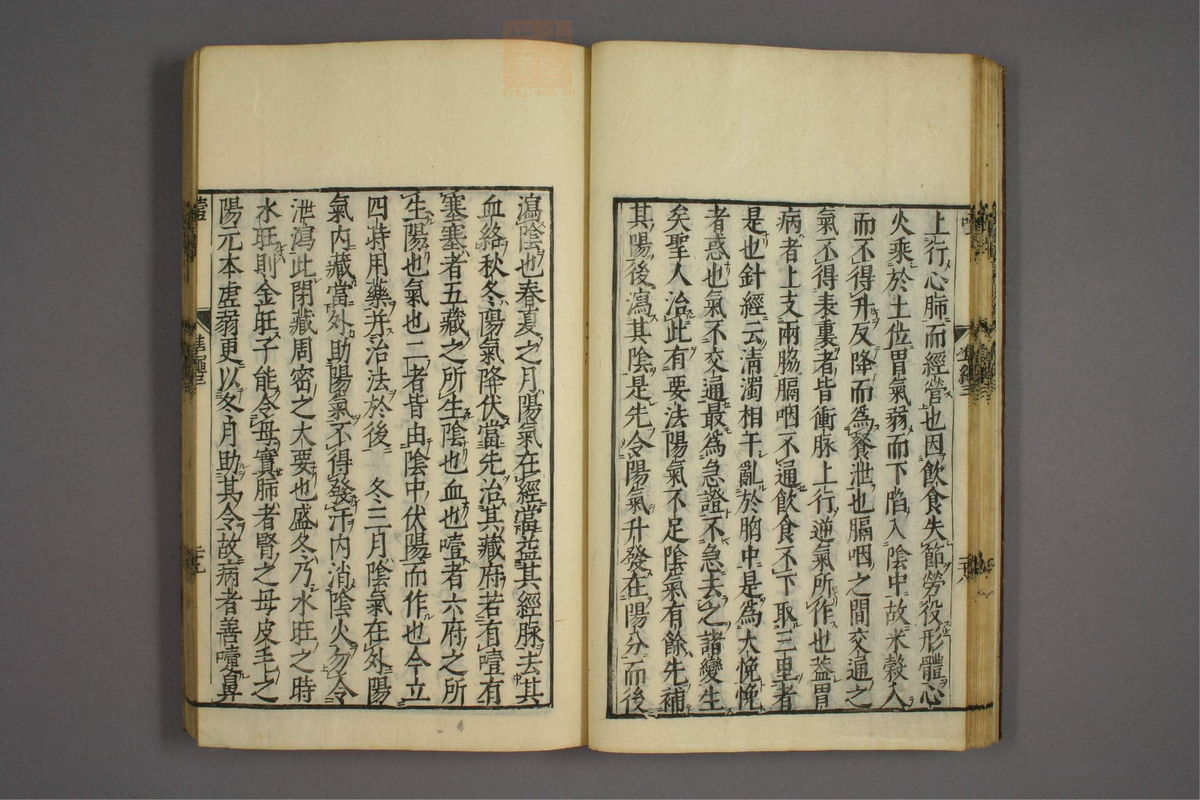 上行心肺而經營也因飲食失節勞役形體心
火乘於土位胃氣弱而下陷入陰中故米穀入
而不得升反降而為飧泄也膈咽之間交通之
氣不得表裏者皆衝脉上行逆氣所作也蓋胃
病者上支兩脇膈咽不通飲食不下取三里者
是也針經云清濁相干亂於胸中是為大悗悗
者惑也氣不交通最為急證不急去之諸變生
矣聖人治此有要法陽氣不足陰氣有餘先補
其陽後瀉其陰是先令陽氣升發在陽分而後
瀉陰也春夏之月陽氣在經當益其經脉去其
血絡秋冬陽氣降伏當先治其藏府若有噎有
塞塞者五藏之所生陰也血也噎者六府之所
生陽也氣也二者皆由陰中伏陽而作也今立
四時用藥并治法於後 冬三月陰氣在外陽
氣內藏當外助陽氣不得發汗內消陰火勿令
泄瀉此閉藏周密之大要也盛冬乃水旺之時
水旺則金旺子能令母實肺者腎之母皮毛上之
陽元本虛弱更以冬月助其令故病者善嚏鼻